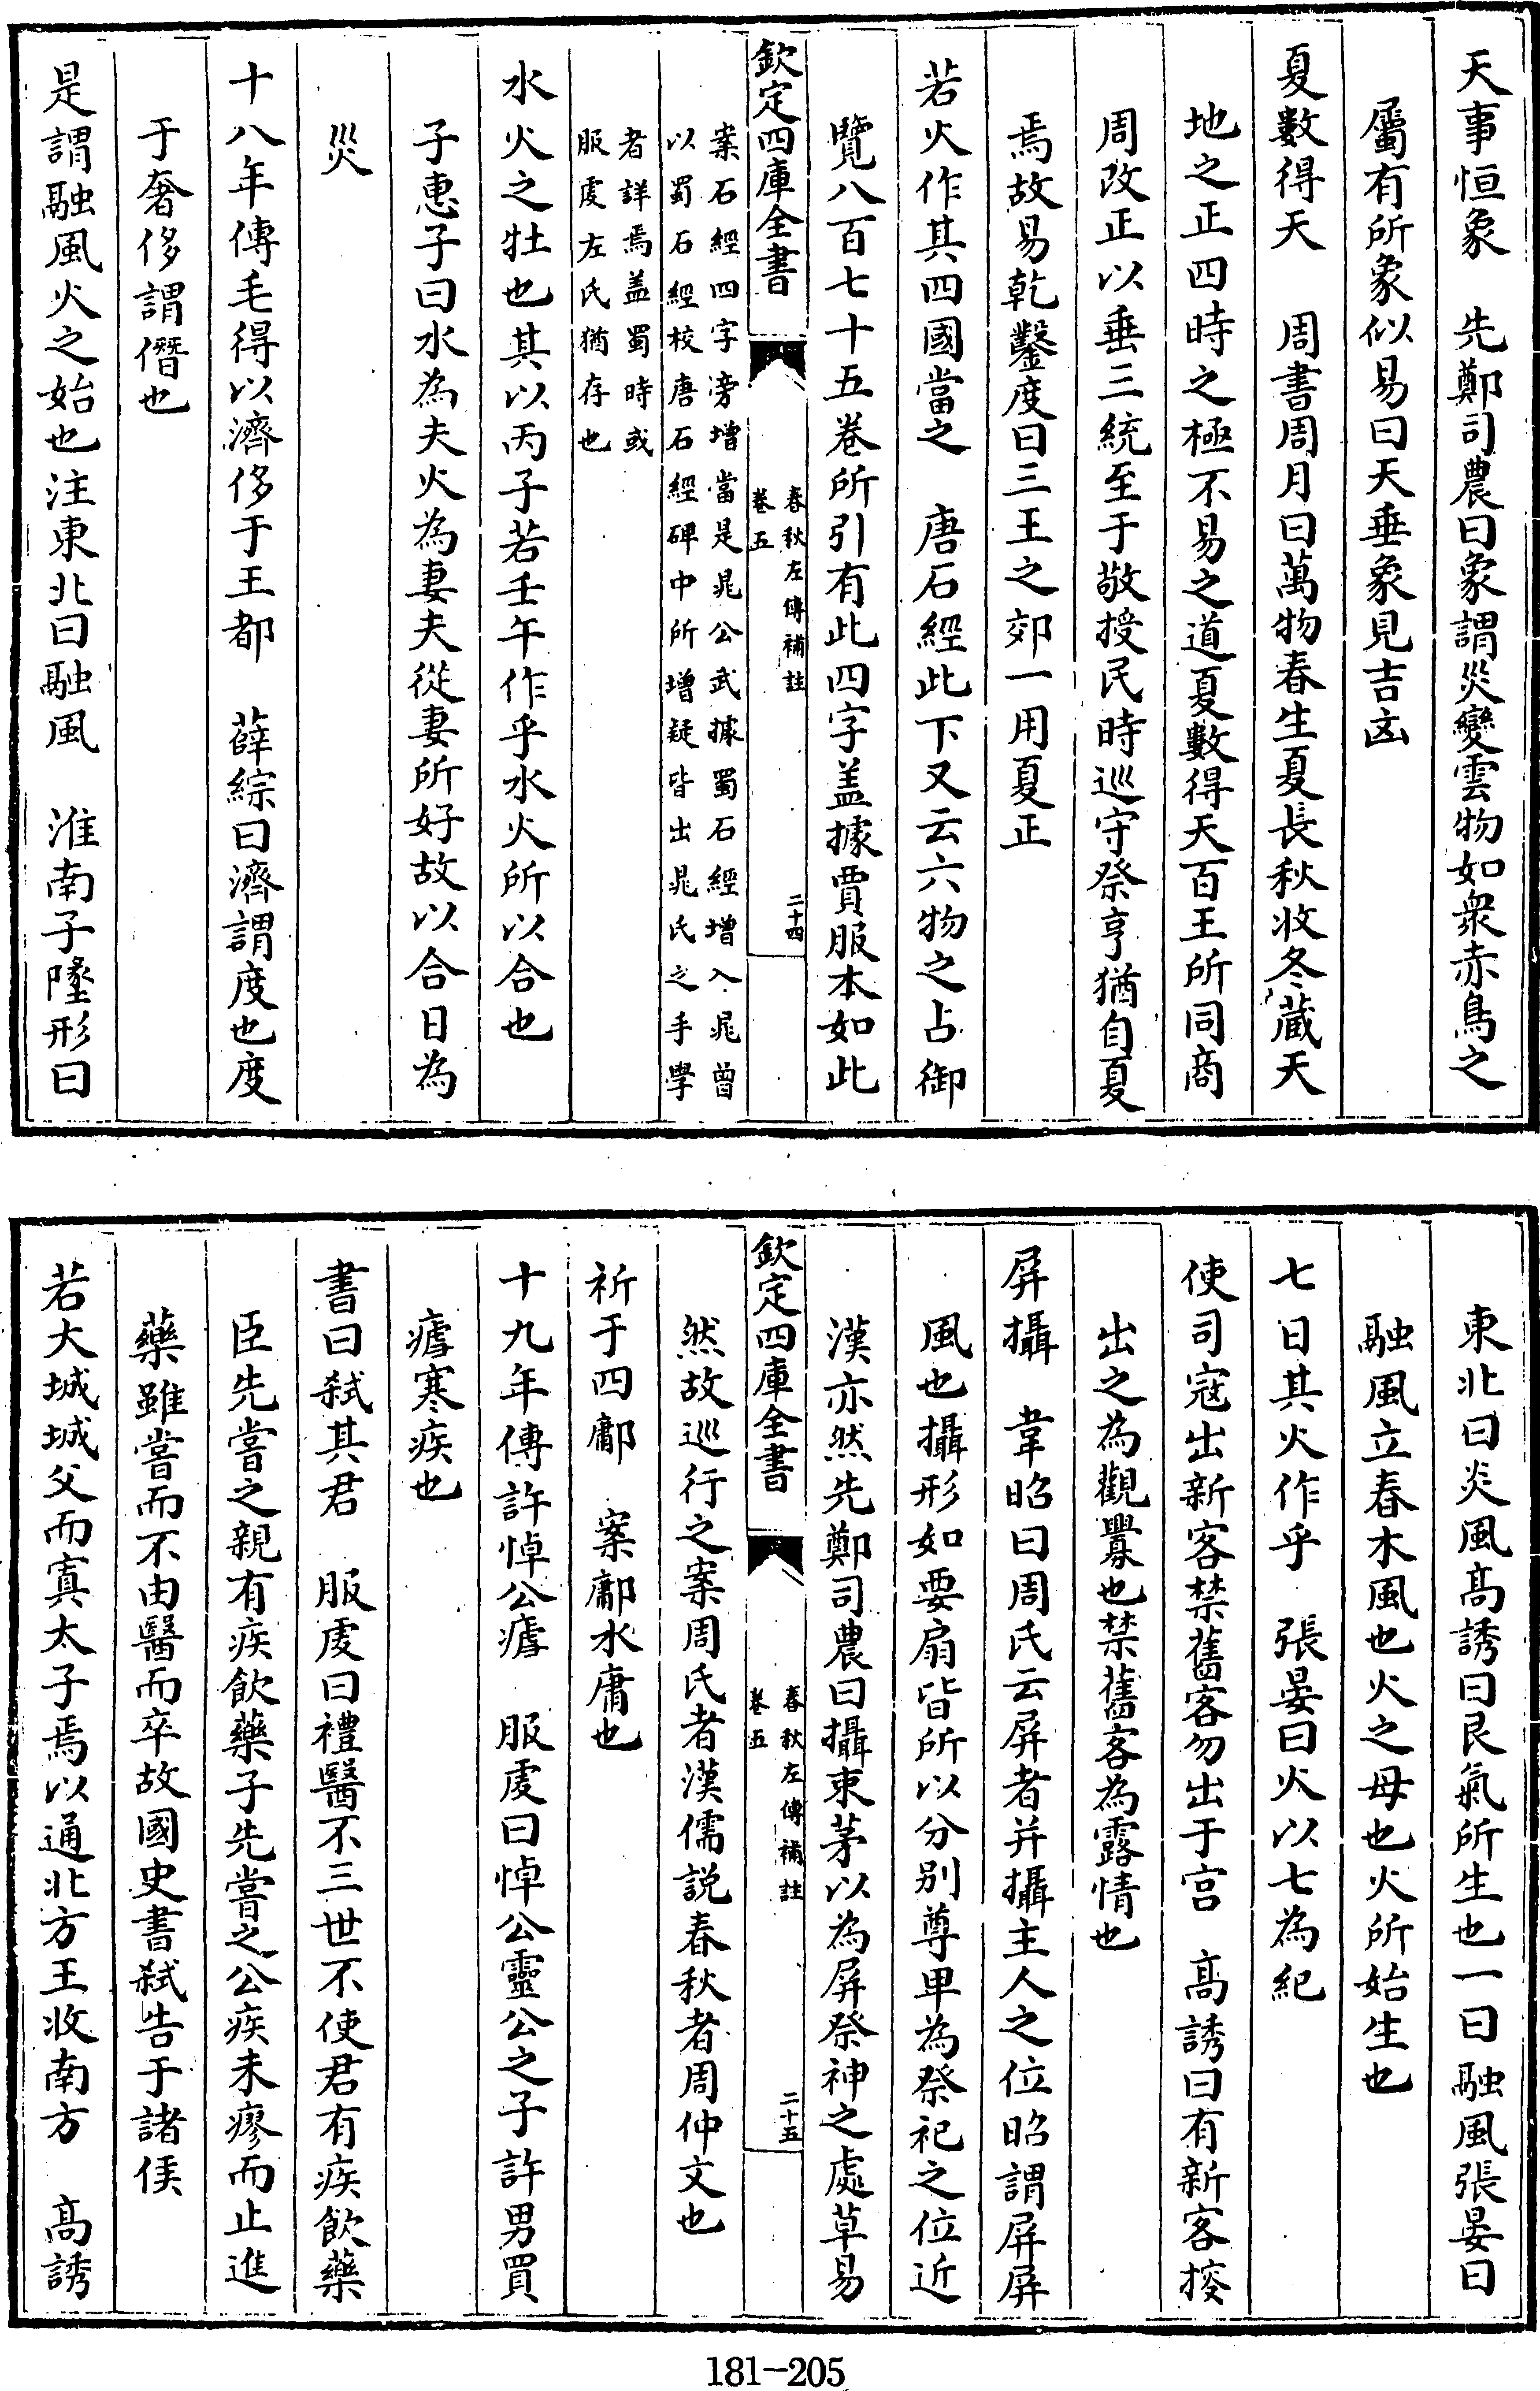 天事恒象　先鄭司農曰象謂災變雲物如衆赤鳥之
屬有所象似易曰天垂象見吉凶
夏數得天　周書周月曰萬物春生夏長秋收冬藏天
地之正四時之極不易之道夏數得天百王所同商
周改正以垂三統至于敬授民時巡守祭亨猶自夏
焉故易乾鑿度曰三王之郊一用夏正
若火作其四國當之　唐石經此下又云六物之占御
覽八百七十五卷所引有此四字盖據賈服本如此
欽定四庫全書
春秋左傳補註
卷五
二十四
案石經四字旁增當是晁公武據蜀石經增入晁曾
以蜀石經校唐石經碑中所增疑皆出晁氏之手學
者詳焉盖蜀時或
服虔左氏猶存也
水火之牡也其以丙子若壬午作乎水火所以合也
子惠子曰水為夫火為妻夫從妻所好故以合日為
災
十八年傳毛得以濟侈于王都　薛綜曰濟謂度也度
于奢侈謂僭也
是謂融風火之始也注東北曰融風　淮南子墬形曰
東北曰炎風高誘曰艮氣所生也一曰融風張晏曰
融風立春木風也火之母也火所始生也
七日其火作乎　張晏曰火以七為紀
使司宼出新客禁舊客勿出于宫　高誘曰有新客搲
出之為觀釁也禁舊客為露情也
屏攝　韋昭曰周氏云屏者并攝主人之位昭謂屏屏
風也攝形如要扇皆所以分别尊卑為祭祀之位近
漢亦然先鄭司農曰攝束茅以為屏祭神之處草易
欽定四庫全書
春秋左傳補註
卷五
二十五
然故巡行之案周氏者漢儒説春秋者周仲文也
祈于四鄘　案鄘水庸也
十九年傳許悼公瘧　服虔曰悼公靈公之子許男買
瘧寒疾也
書曰弑其君　服虔曰禮醫不三世不使君有疾飲藥
臣先嘗之親有疾飲藥子先嘗之公疾未瘳而止進
藥雖嘗而不由醫而卒故國史書弑告于諸侯
若大城城父而寘太子焉以通北方王收南方　高誘
181-205